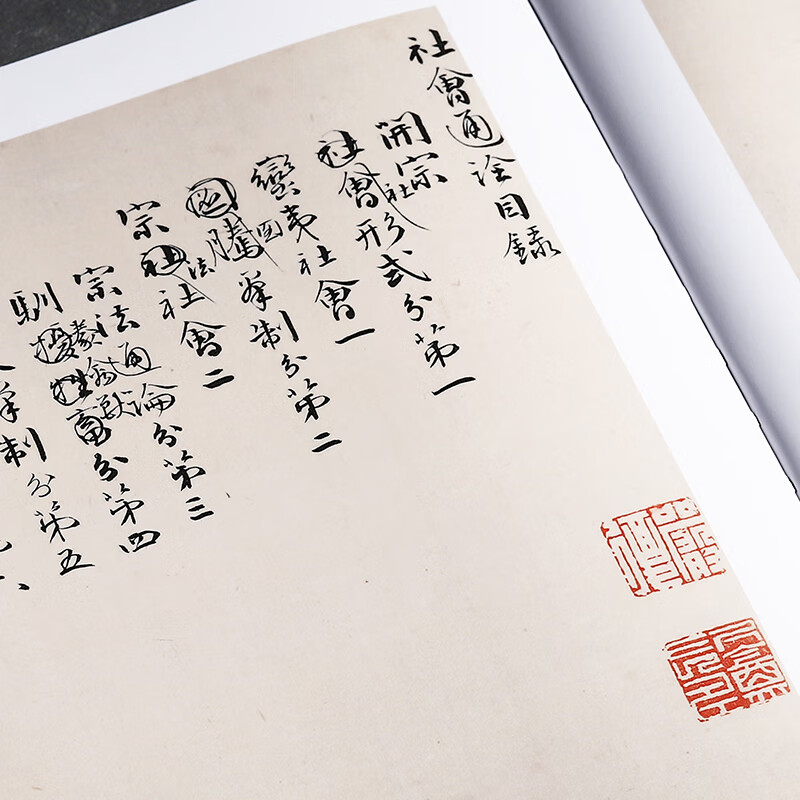 社會通詮目錄
開宗
社會形式分第一
蠻夷社會一
圖騰羣制分第二
宗法社會二
宗法通論分第三
馴擾牲畜分第四
羣制分第五
六